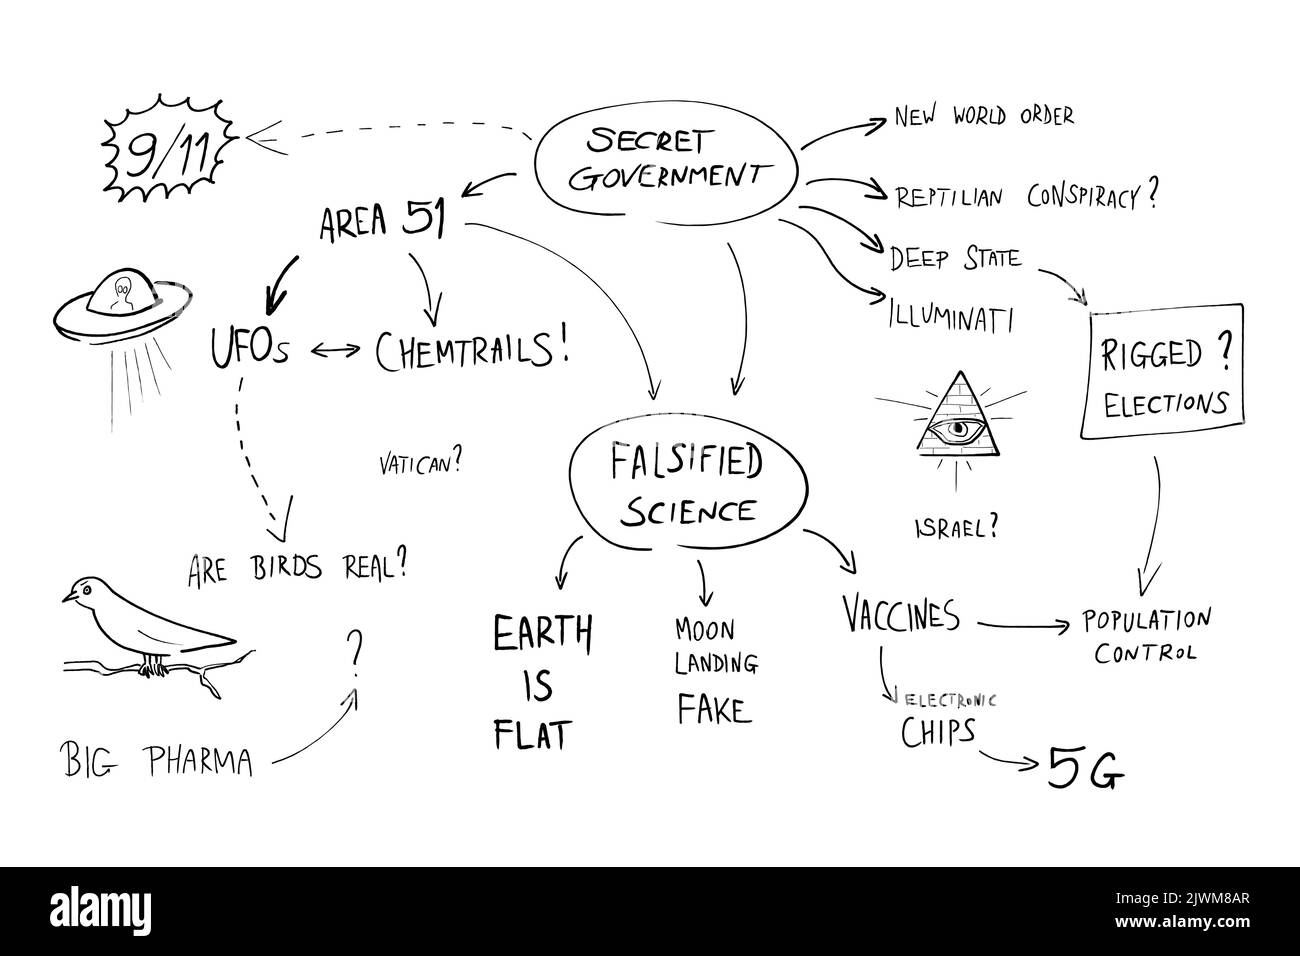 9/11
SECRET
GOVERNMENT
NEW WORLD ORDER
REPTILIAN CONSPIRACY?
DEEP STATE
ILLUMINATI
AREA 51
UFOs
CHEMTRAILS!
RIGGED?
ELECTIONS
VATICAN?
FALSIFIED
SCIENCE
ISRAEL?
ARE BIRDS REAL?
?
BIG PHARMA
EARTH
IS
FLAT
MOON
LANDING
FAKE
VACCINES
POPULATION
CONTROL
ELECTRONIC
CHIPS
5G
alamy
Image ID: 2JWM8AR
www.alamy.com